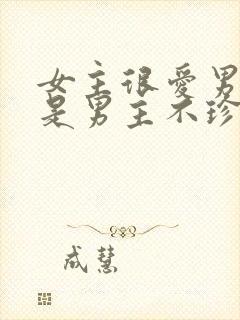 女主很爱男
是男主不珍
成慧